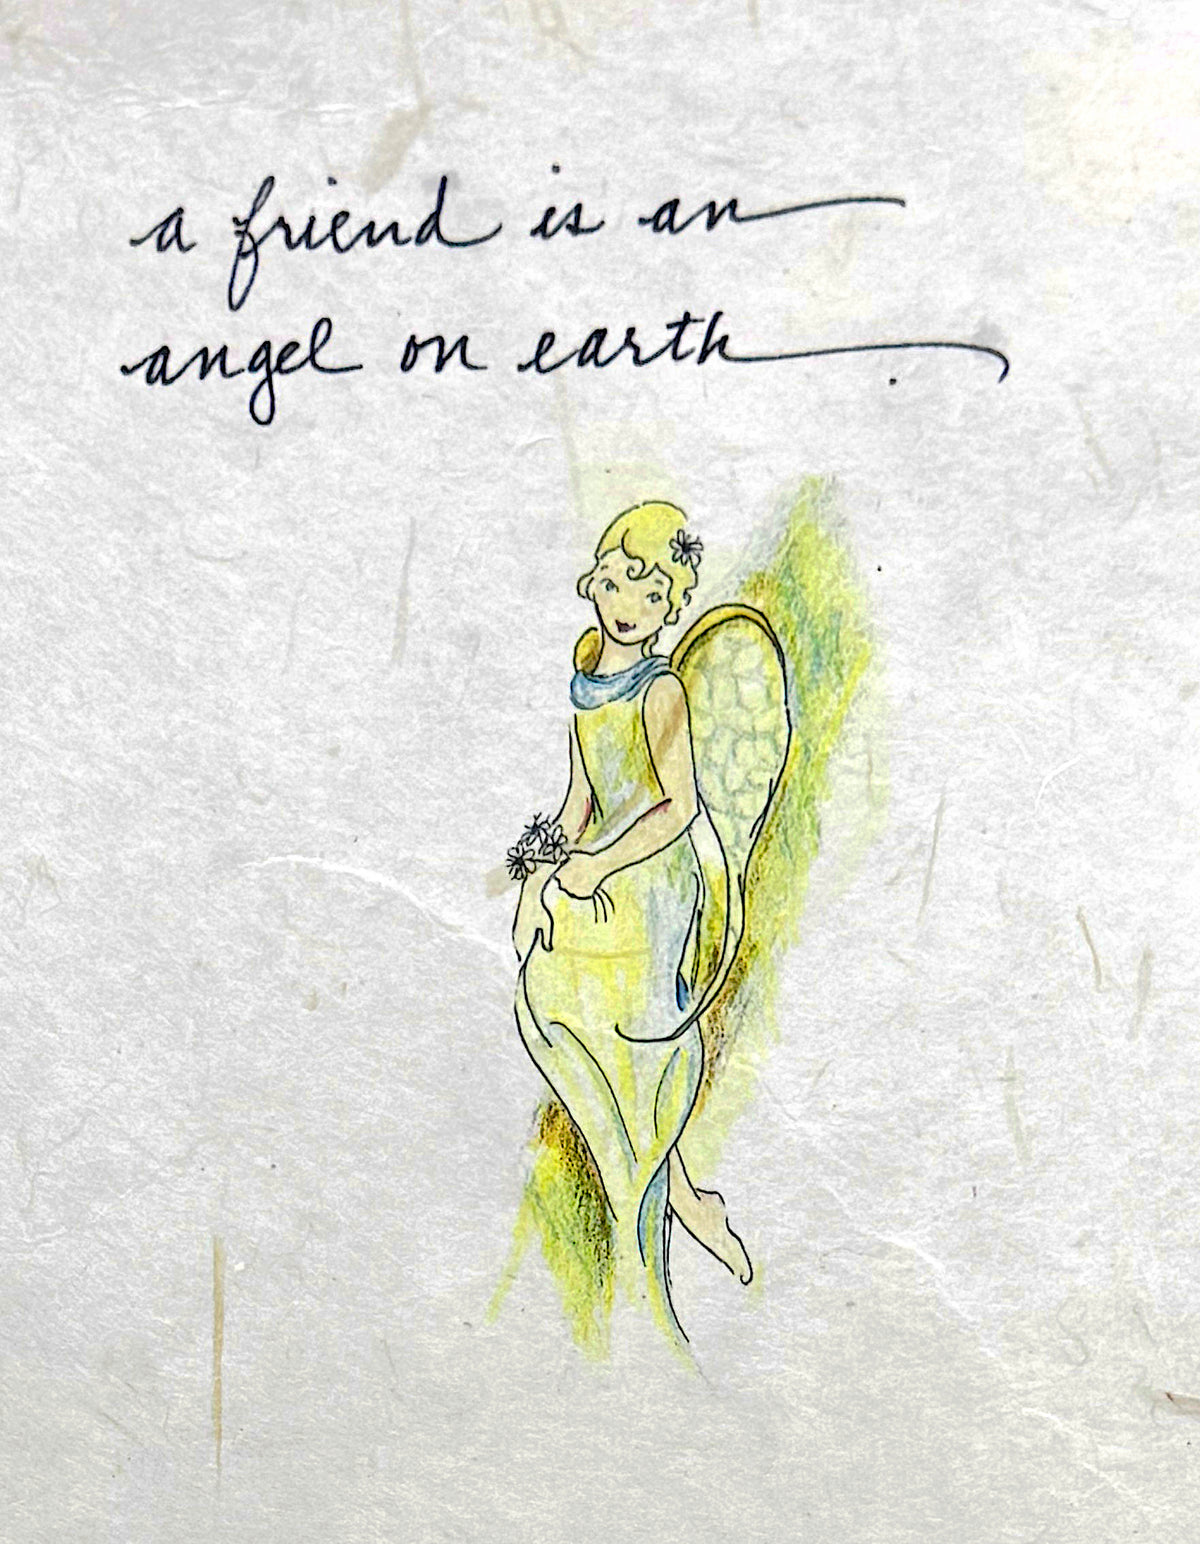 a friend is an
angel on earth